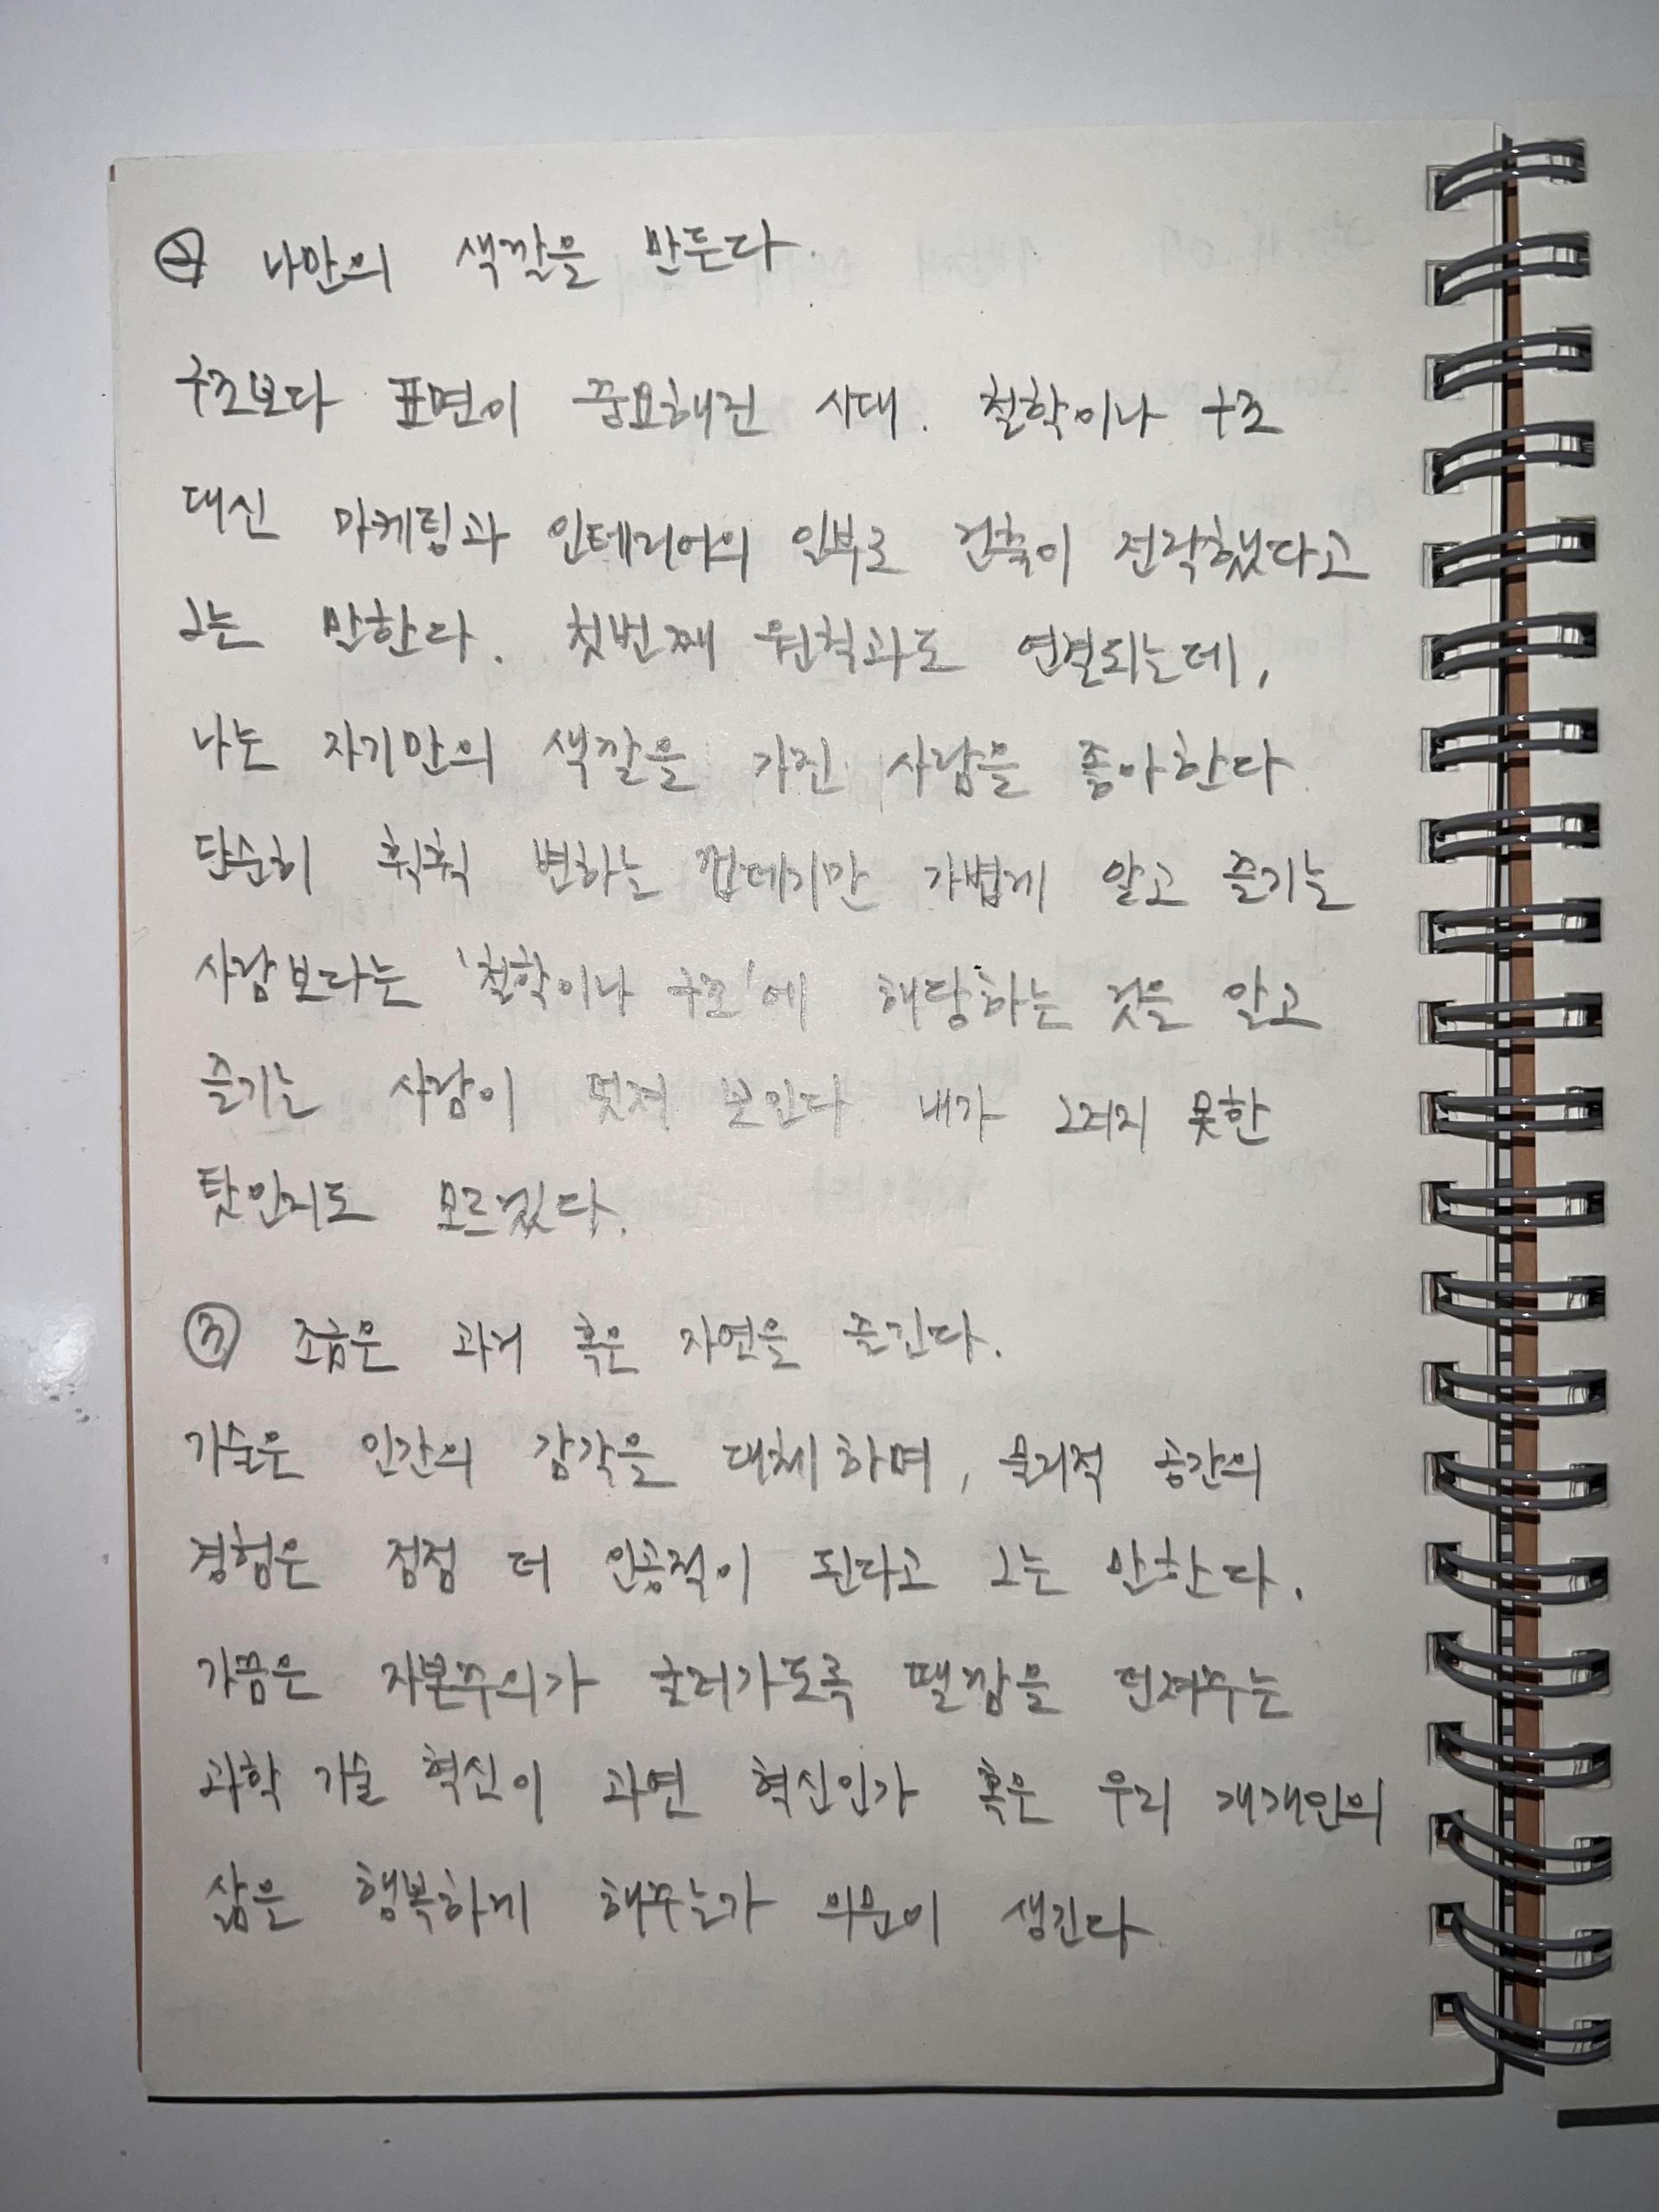 ② 나만의 색깔을 만든다.
구조보다 표면이 중요해진 시대. 철학이나 구조
대신 마케팅과 인테리어의 일부로 건축이 전락했다고
그는 말한다. 첫번째 원칙과도 연결되는데,
나는 자기만의 색깔을 가진 사람을 좋아한다.
단순히 휙휙 변하는 껍데기만 가볍게 알고 즐기는
사람보다는 '철학이나 구조'에 해당하는 것을 알고
즐기는 사람이 멋져 보인다 내가 그러지 못한
탓인지도 모르겠다.
③ 조금은 과거 혹은 자연을 즐긴다.
기술은 인간의 감각을 대체하며, 물리적 공간의
경험은 점점 더 인공적이 된다고 그는 말한다.
가끔은 자본주의가 굴러가도록 땔깜을 던져주는
과학 기술 혁신이 과연 혁신인가 혹은 우리 개개인의
삶은 행복하게 해주는가 의문이 생긴다.